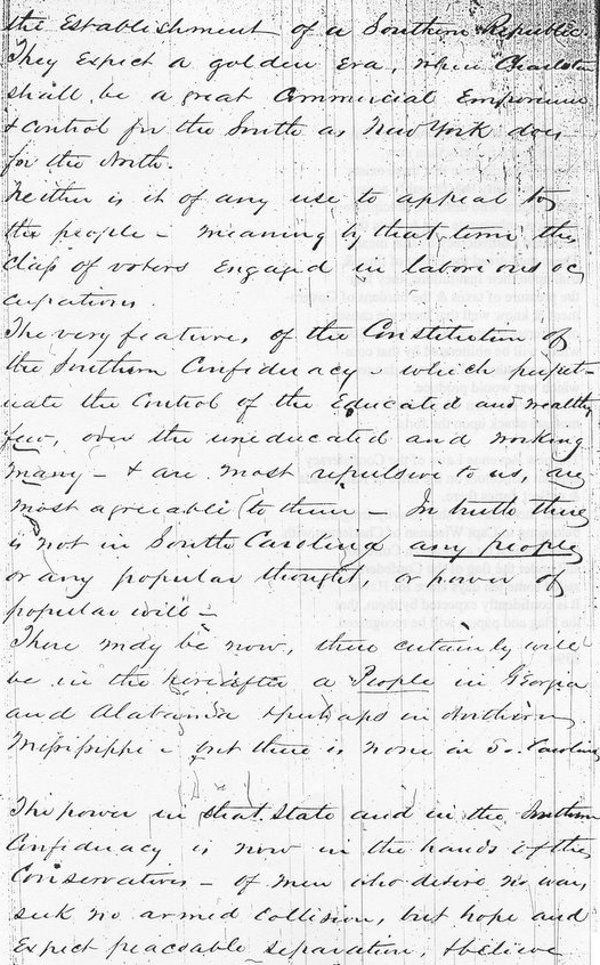 the Establishment of a Southern Republic.
They Expect a golden Era, when Charleston
shall be a great Commercial Emporium
& control for the South as New York does
for the North.
Neither is it of any use to appeal to
the people – meaning by that term the
class of voters Engaged in laborious oc
cupations.
The very features, of the Constitution of
the Southern Confideracy – which perpet-
uate the Control of the Educated and wealthy
few, over the uneducated and working
many – & are most repulsive to us, are
most agreeable to them – In truth there
is not in South Carolina any people
or any popular thought, or power of
popular will –
There may be now, there certainly will
be in the hereafter a People in Georgia
and Alabama & perhaps in Northern
Mississippi – but there is none in So. Carolina
The power in that State and in the Southern
Confideracy is now in the hands of the
Conservatives – of men who desire no war,
seek no armed collision, but hope and
Expect peaceable separation, & believe